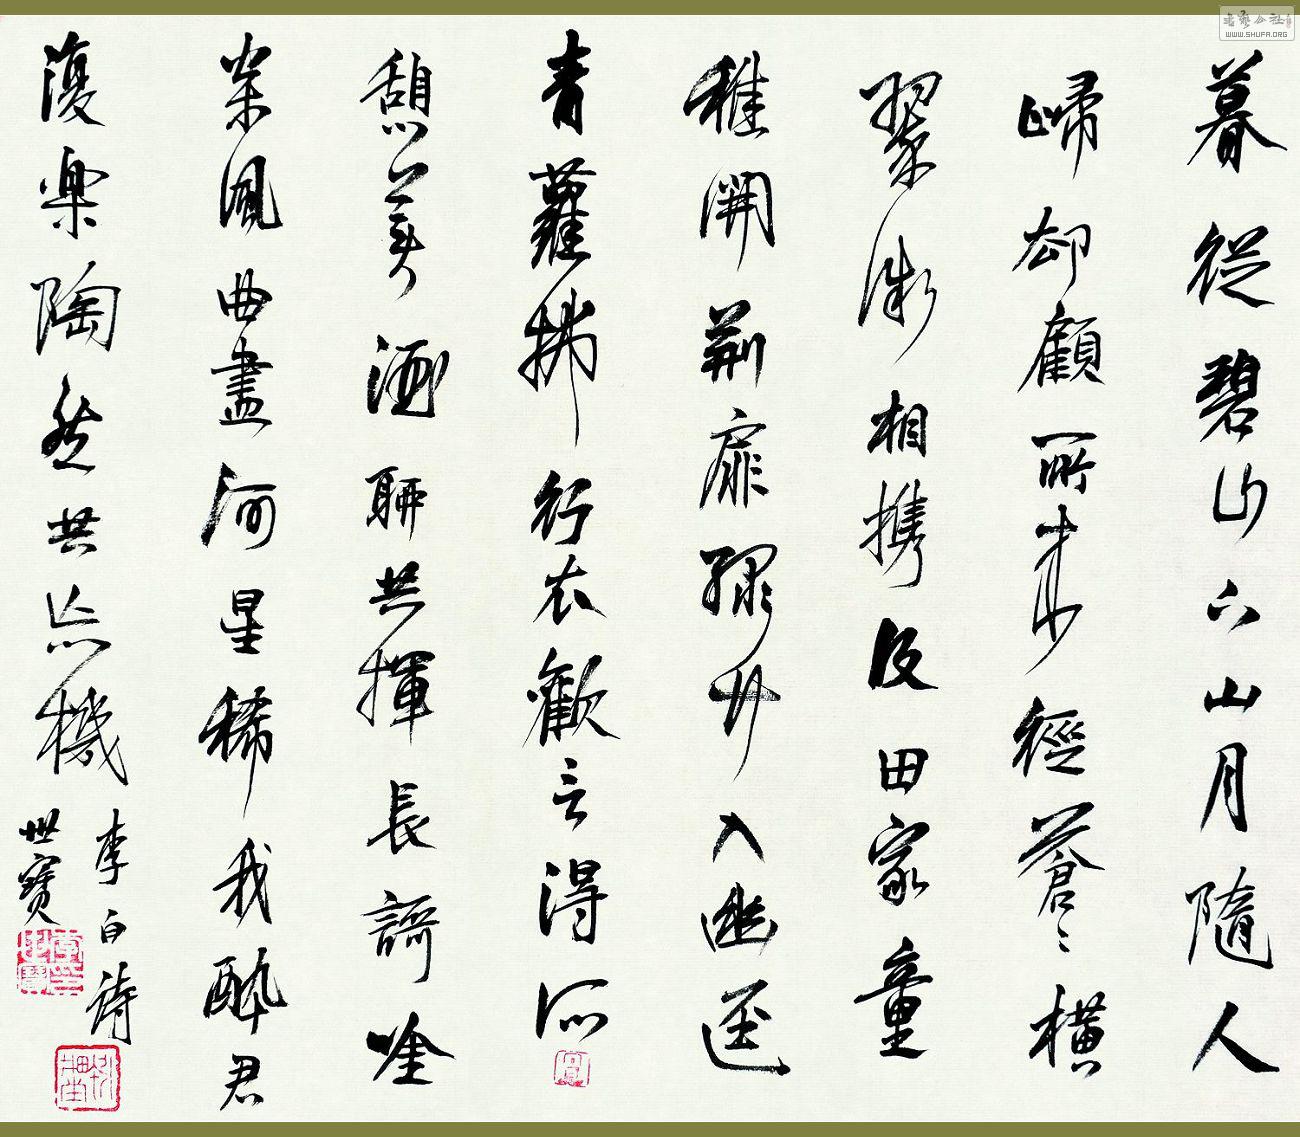 暮從碧山下山月隨人
歸却顧所來徑蒼〻橫
翠微相携及田家童
稚開荊扉綠竹入幽逕
青蘿拂行衣歡言得所
憩美酒聊共揮長謌唫
枀風曲盡河星稀我醉君
復樂陶然共忘機
李白詩
世寶
书艺公社
WWW.SHUFA.ORG